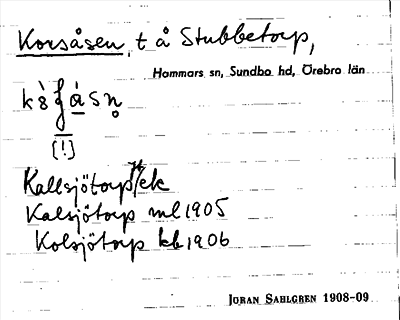 Korsåsen, t å Stubbetorp,
Hammars sn, Sundbo hd, Örebro län
[!]
Kallsjötorp ek
Kalsjötorp ml 1905
Kolsjötorp kb 1906
JÖRAN SAHLGREN 1908-09